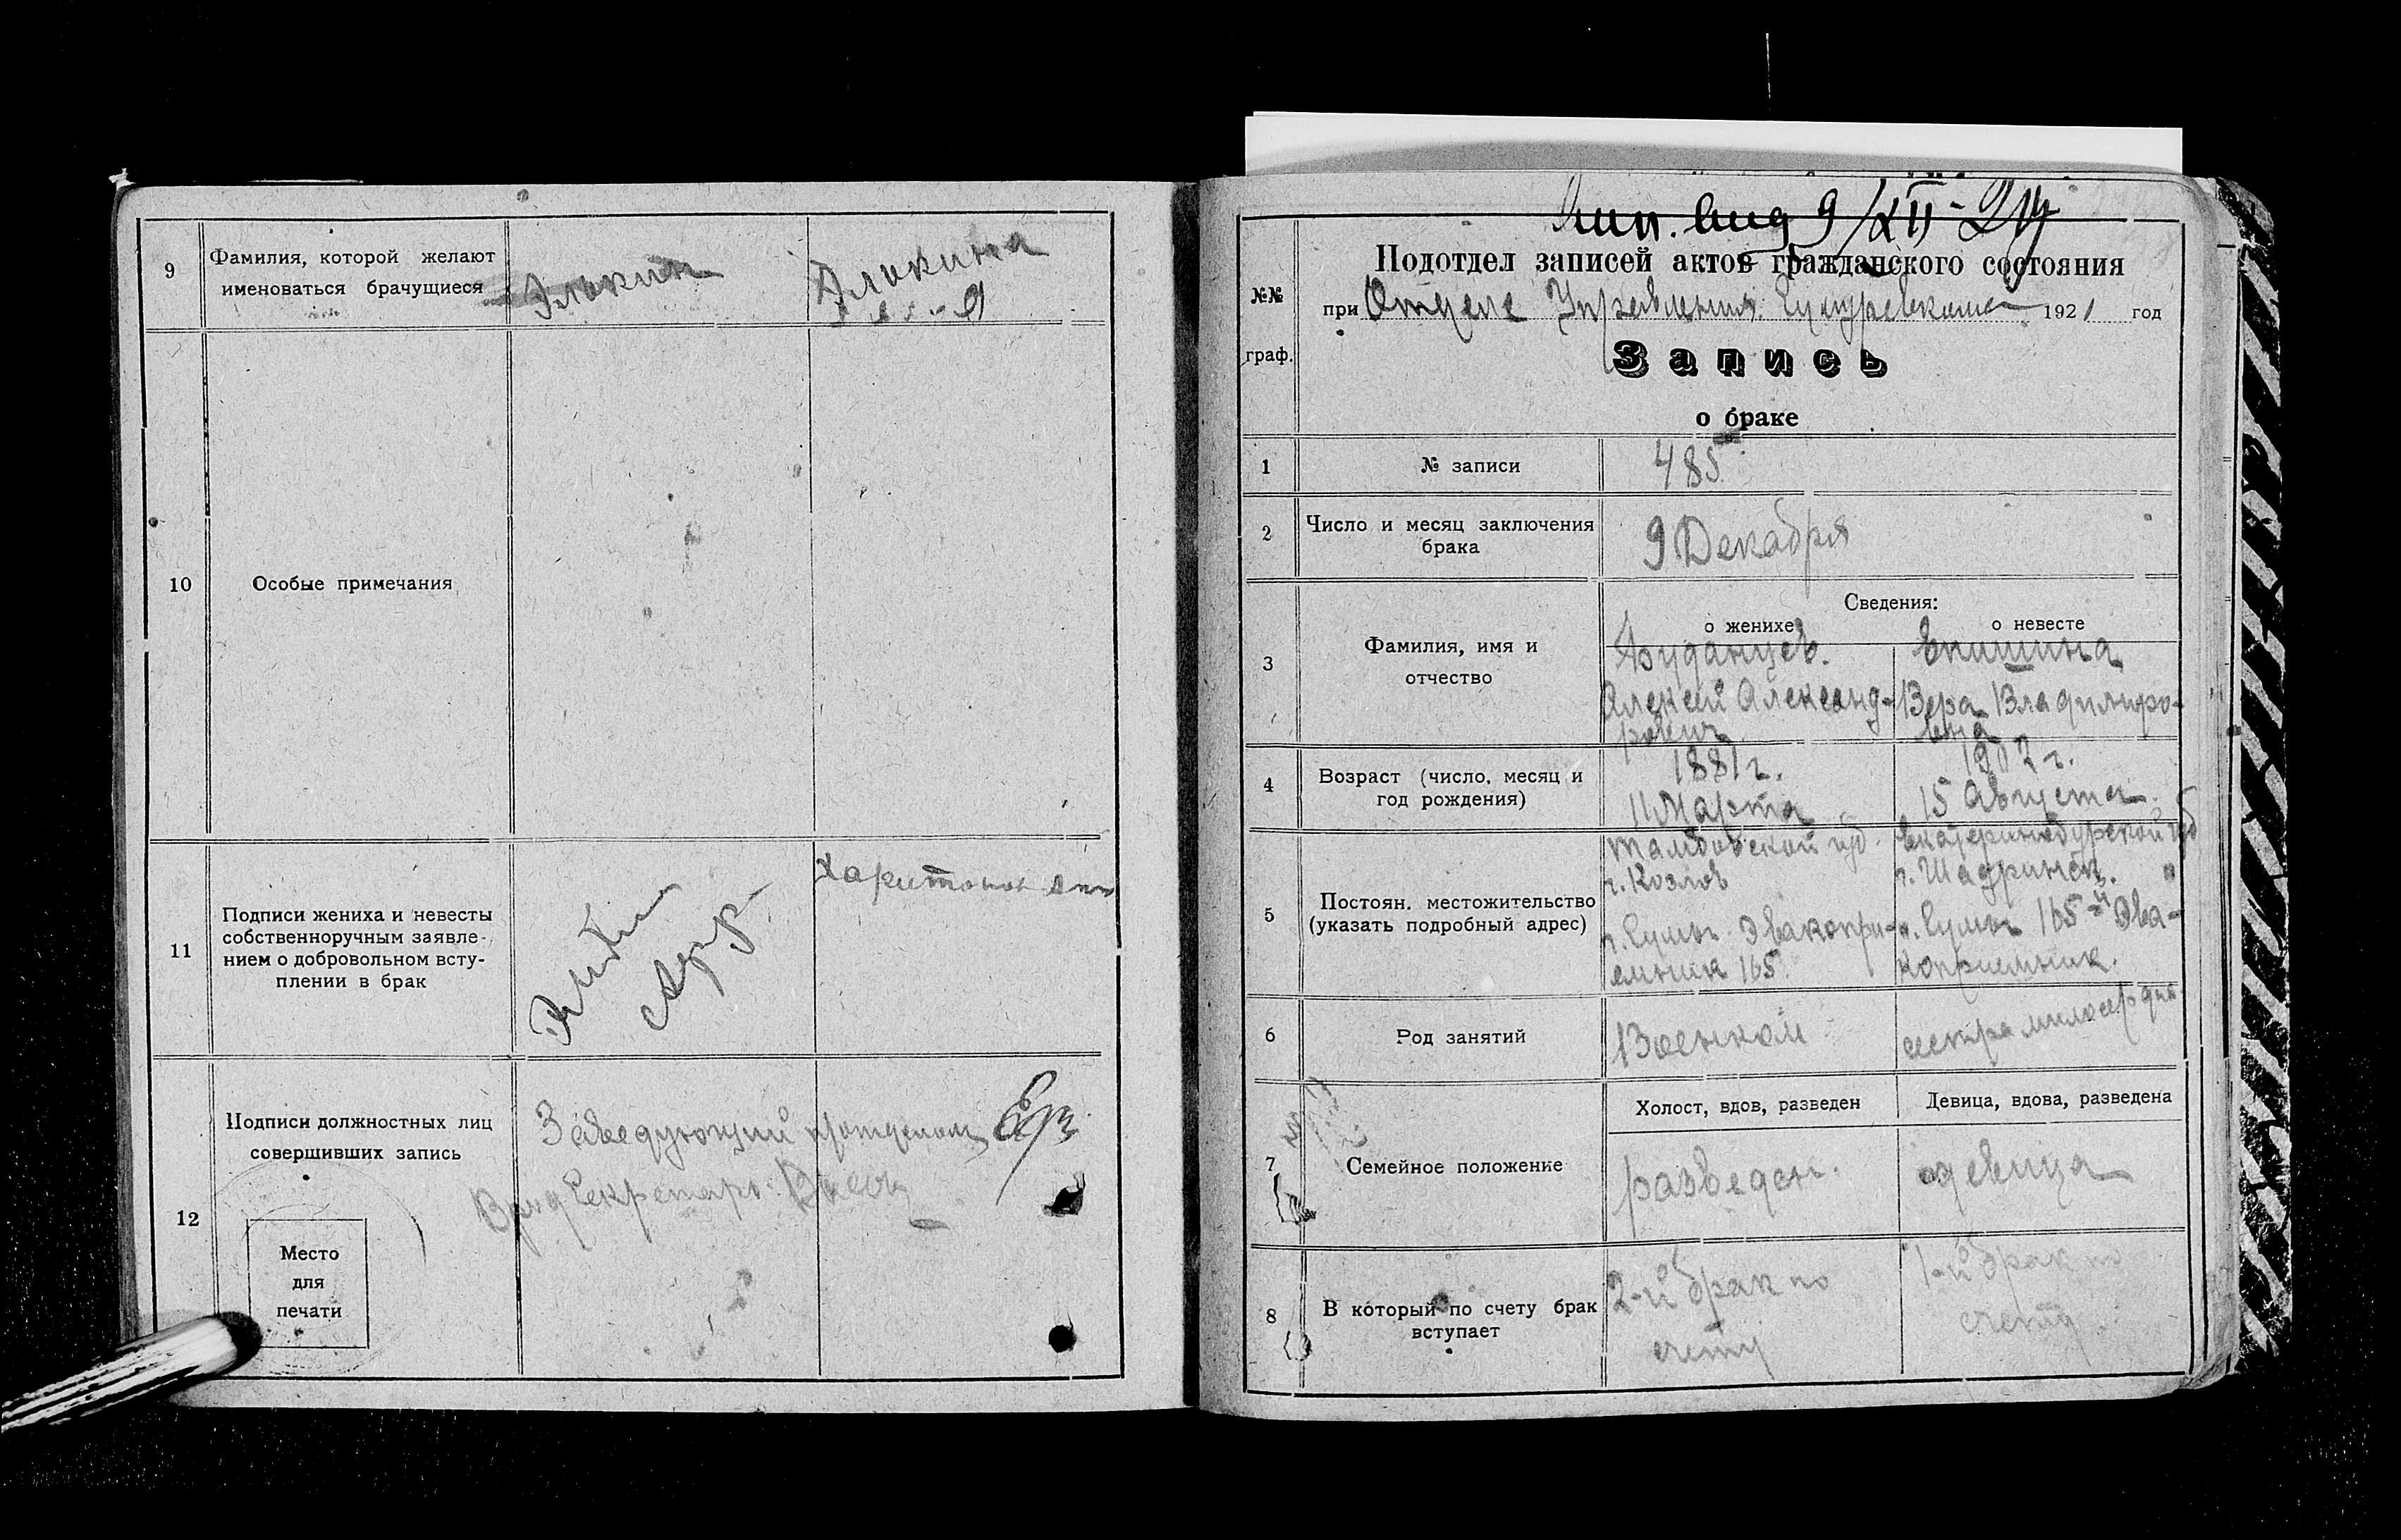 9
Фамилия, которой желают
именоваться брачущиеся
10
Особые примечания
11
Подписи жениха и невесты
собственноручным заявле-
нием о добровольном всту-
плении в брак
Харитонов
12
Подписи должностных лиц
совершивших запись
Заведующий
Секретарь
Место
для
печати
вид 9/XII-21
№№
граф.
Подотдел записей актов гражданского состояния
при Отделе Управления 1921 год
Запись
о браке
1
№ записи
485
2
Число и месяц заключения
брака
9 Декабря
3
Фамилия, имя и
отчество
Сведения:
о женихе
о невесте
Буданцев.
Алексей Александ-
рович
Епишина
Вера Владимиро-
вна
4
Возраст (число, месяц и
год рождения)
1881 г.
11 Марта
1902 г.
15 Августа
5
Постоян. местожительство
(указать подробный адрес)
Тамбовской губ.
г. Козлов
г. Сумы Эвакопри-
емник 165
Екатеринбургской губ
г. Шадринск.
г. Сумы 165-й Эва-
коприемник.
6
Род занятий
Военком
сестра милосердия
7
Семейное положение
Холост, вдов, разведен
Девица, вдова, разведена
разведен.
девица
8
В который по счету брак
вступает
2-й брак по
счету
1-й брак по
счету